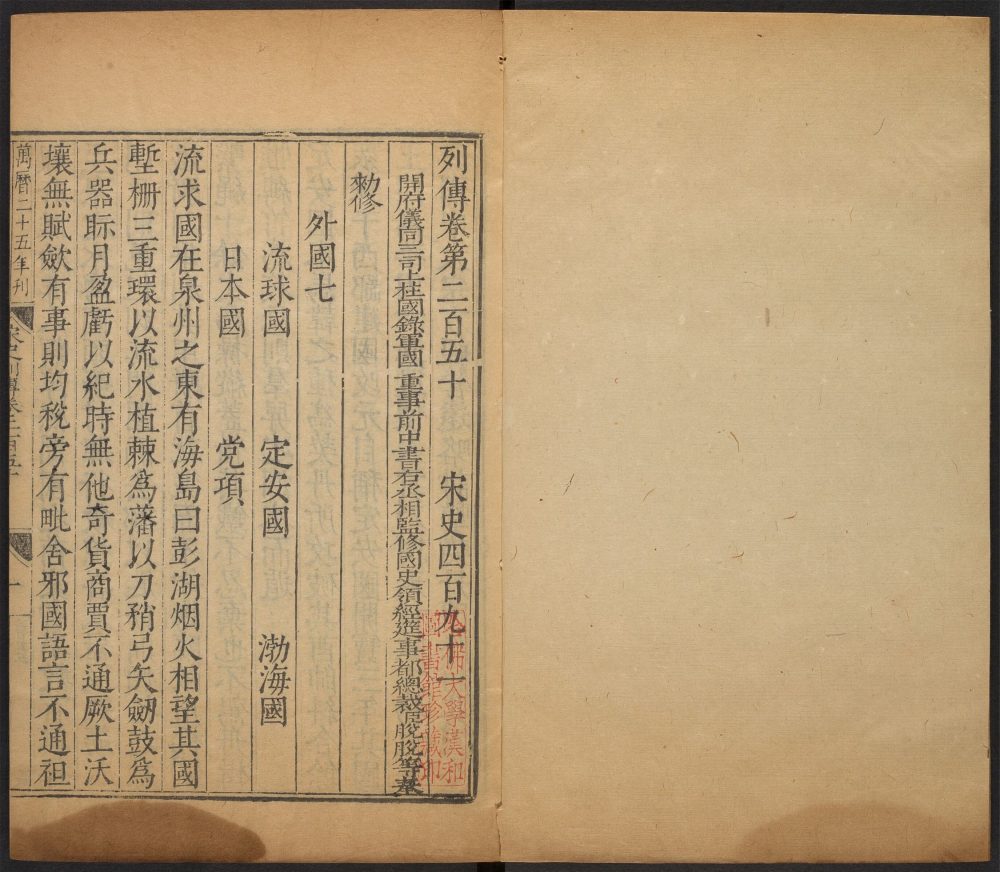 列傳卷第二百五十　宋史四百九十一
開府儀同三司上柱國錄軍國重事前中書右丞相監修國史領經筵事都總裁臣脫脫等奉
勑修
外國七
流球國　定安國　渤海國
日本國　党項
流求國在泉州之東有海島曰彭湖烟火相望其國
塹栅三重環以流水植棘為藩以刀矟弓矢劒鼓為
兵器眎月盈虧以紀時無他奇貨商賈不通厥土沃
壤無賦斂有事則均稅旁有毗舍邪國語言不通袒
萬曆二十五年刊
宋史列傳卷二百五十
一
哈佛大學漢和
圖書館珍藏印